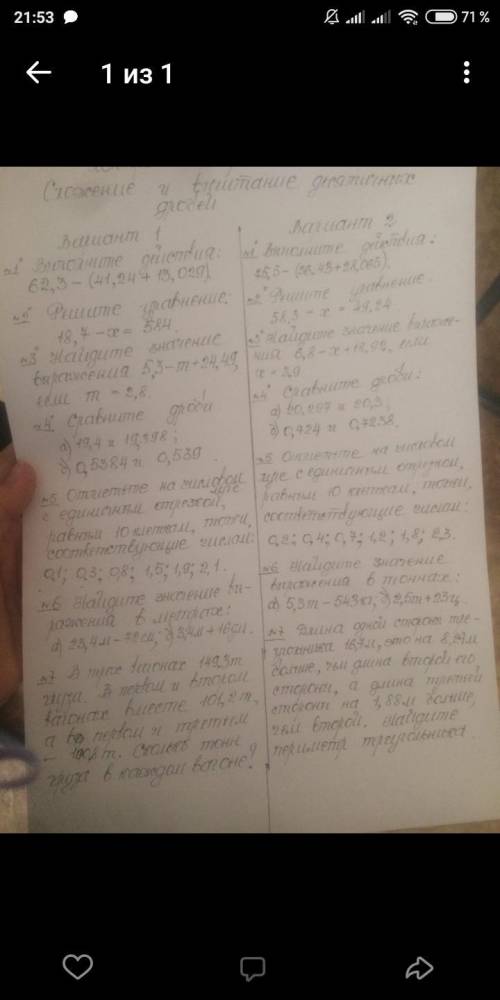 21:53
71 %
1 из 1
Сложение и вычитание десятичных
дробей
Вариант 1
№1° Выполните действия:
62,3-(41,24+13,029).
№2° Решите уравнение:
18,7-x=5,84.
№3° Найдите значение
выражения 5,3-m+24,49,
если m=2,8.
№4° Сравните дроби
а) 19,4 и 19,398;
б) 0,5384 и 0,539.
№5 Отметьте на числовом
луче
с единичным отрезком,
равным 10 клеткам, точки,
соответствующие числам:
0,1; 0,3; 0,8; 1,5; 1,9; 2,1.
№6 Найдите значение вы-
ражения в метрах:
№7 В трёх вагонах 149,3т
груза. В первом и втором
вагонах вместе 101,2т,
а в первом и третьем
Сколько тонн
груза в каждом вагоне?
Вариант 2
№1° Выполните действия:
№2° Решите уравнение.
58,3-x=49,24.
№3° Найдите значение выраже-
ния 6,8-x+18,92, если
x=3,9
№4° Сравните дроби:
а) 20,297 и 20,3;
б) 0,724 и 0,7238.
№5 Отметьте на числовом
луче с единичным отрезком,
равным 10 клеткам, точки,
соответствующие числам:
0,2; 0,4; 0,7; 1,2; 1,8; 2,3.
№6 Найдите значение
выражения в тоннах:
а) 5,3т-543кг; б) 2,5т+23ц.
№7 Длина одной стороны тре-
угольника 16,7м, это на
больше, чем длина второй его
стороны, а длина третьей
стороны на 1,88м больше,
чем второй. Найдите
периметр треугольника.